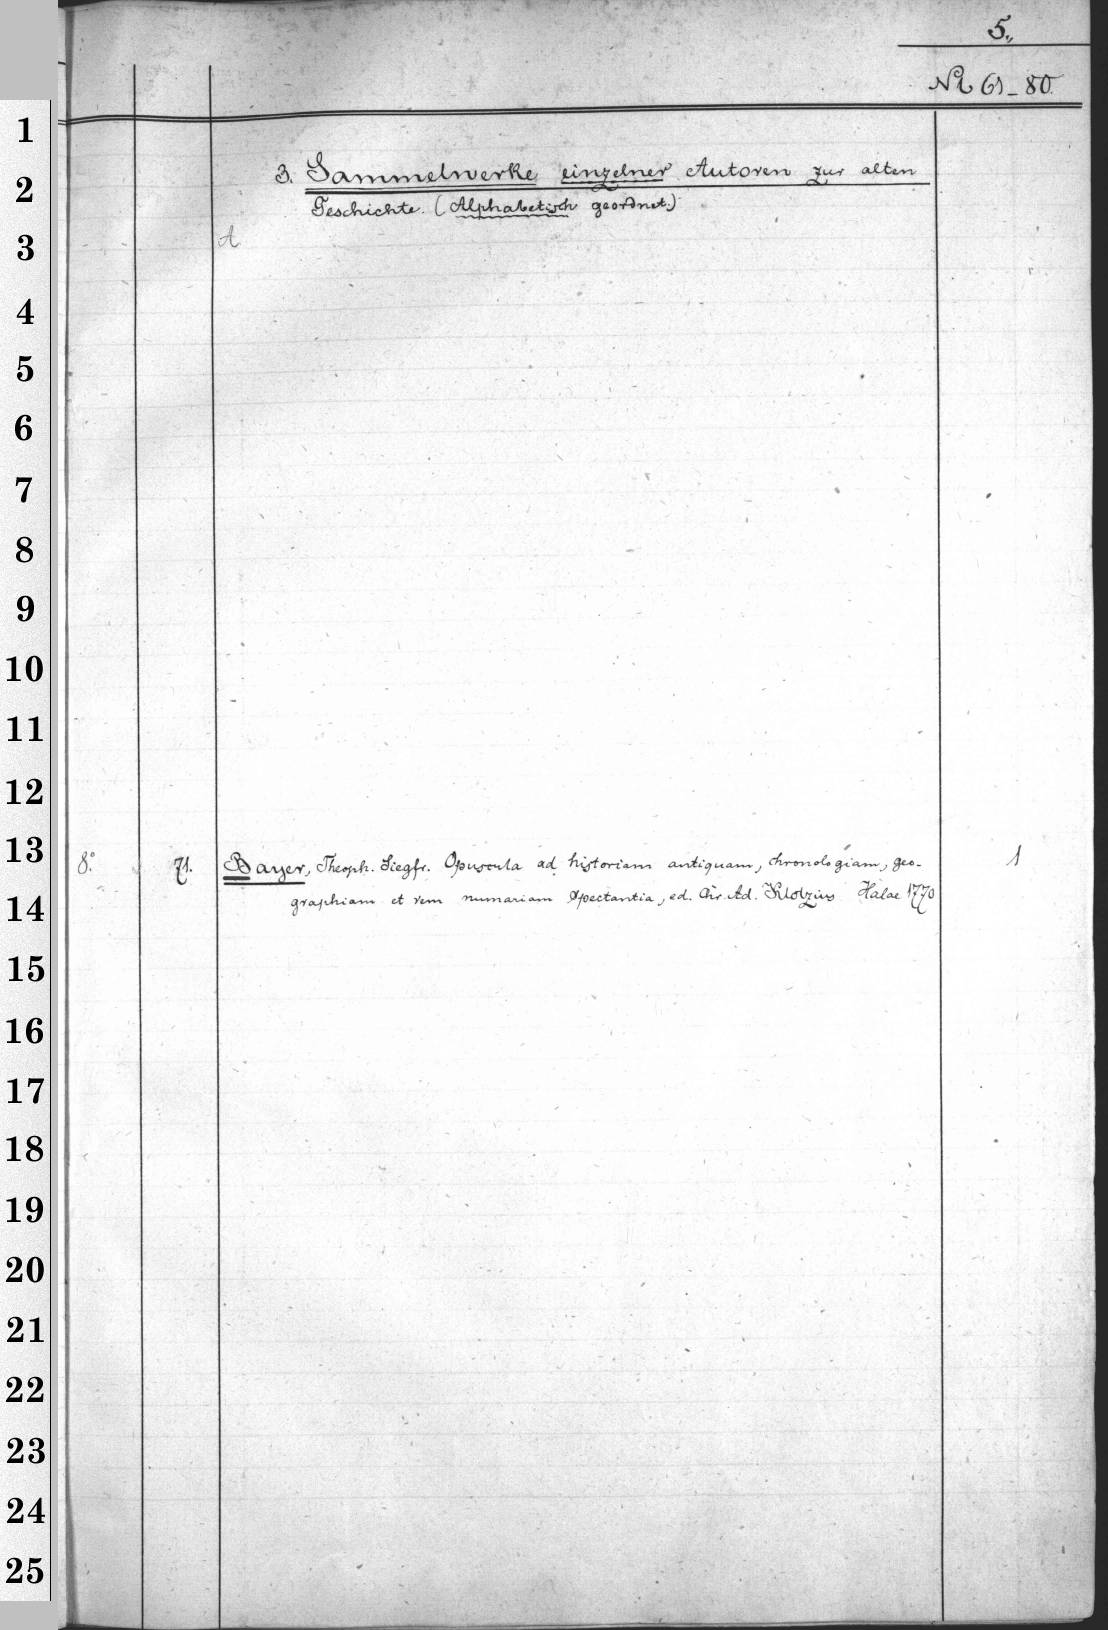 5.
№ 61-80
1
3. Sammelwerke einzelner Autoren zur alten
2
Geschichte. (Alphabetisch geordnet.)
3
A
4
5
6
7
8
9
10
11
12
13
8° 71. Bayer, Theoph. Siegfr. Opuscula ad historiam antiquam, chronologiam, geo- 1
14
graphiam et rem numariam spectantia, ed. Chr. Ad. Klotzius Halae 1770
15
16
17
18
19
20
21
22
23
24
25